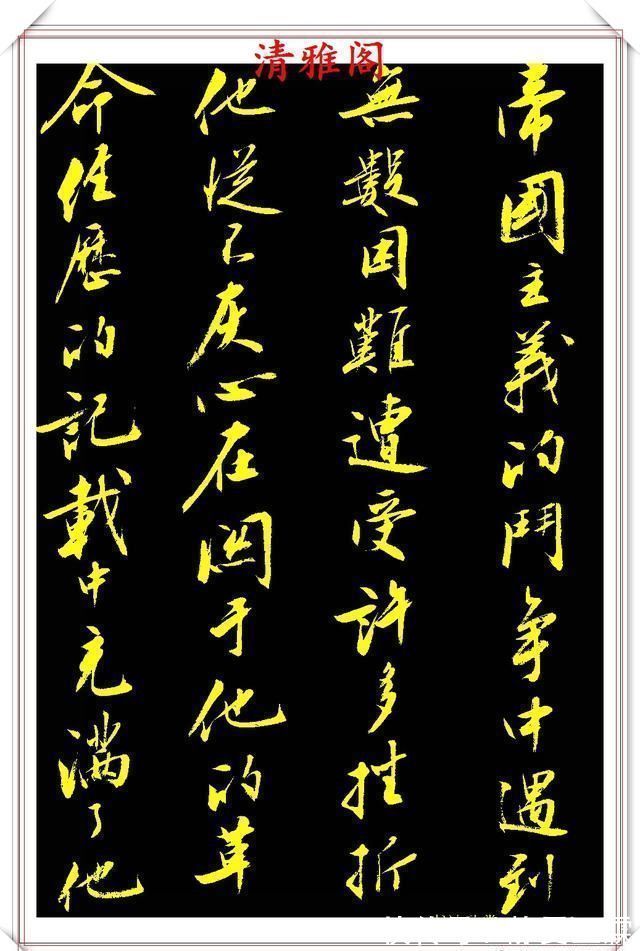 清雅阁
帝國主義的鬥争中遇到
無數困難遭受許多挫折
他從不灰心在関于他的革
命经歷的記載中充滿了他